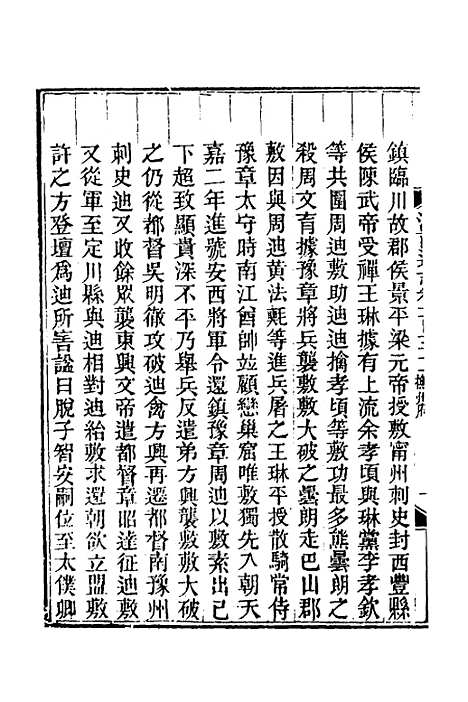 鎮臨川故郡侯景平梁元帝授敷甯州刺史封西豐縣
侯陳武帝受禪王琳據有上流余孝頃與琳黨李孝欽
等共圍周迪敷助迪迪擒孝頃等敷功最多熊曇朗之
殺周文育據豫章將兵襲敷敷大破之曇朗走巴山郡
敷因與周迪黃法𣰰等進兵屠之王琳平授散騎常侍
豫章太守時南江酋帥並顧戀巢窟唯敷獨先入朝天
嘉二年進號安西將軍令還鎮豫章周迪以敷素出己
下超致顯貴深不平乃舉兵反遣弟方興襲敷敷大破
之仍從都督吳明徹攻破迪禽方興再遷都督南豫州
刺史迪又收餘眾襲東興文帝遣都督章昭達征迪敷
又從軍至定川縣與迪相對迪紿敷求還朝欲立盟敷
許之方登壇為迪所害諡曰脫子智安嗣位至太僕卿